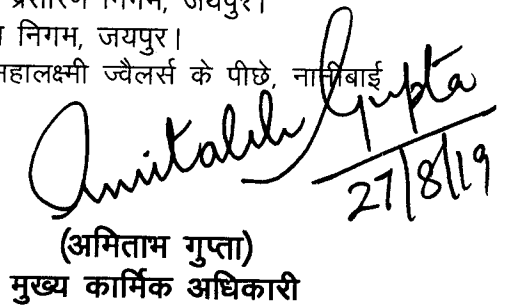 प्रसारण निगम, जयपुर।
निगम, जयपुर।
महालक्ष्मी ज्वैलर्स के पीछे, नानीबाई
Amitabh Gupta
27/8/19
(अमिताभ गुप्ता)
मुख्य कार्मिक अधिकारी